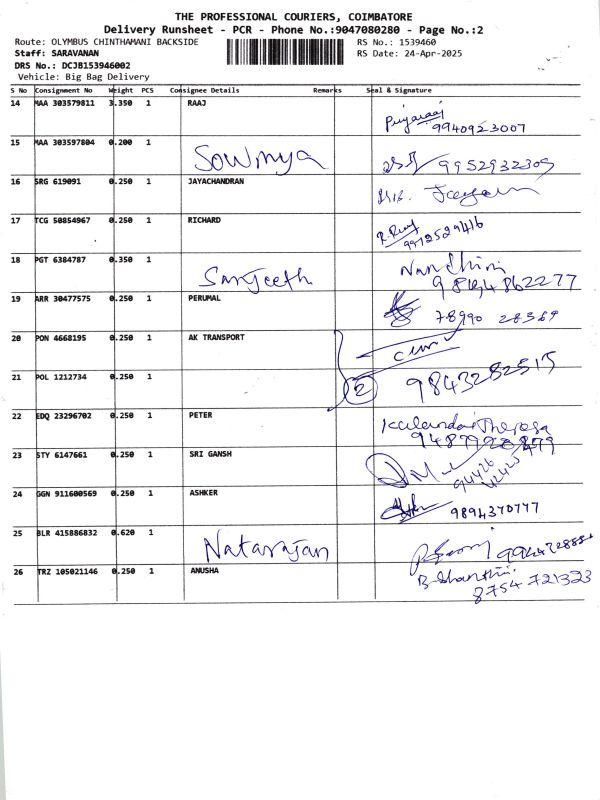 THE PROFESSIONAL COURIERS, COIMBATORE
Delivery Runsheet - PCR - Phone No.:9047080280 - Page No.:2
Route: OLYMBUS CHINTHAMANI BACKSIDE RS No.: 1539460
Staff: SARAVANAN RS Date: 24-Apr-2025
DRS No.: DCJB153946002
Vehicle: Big Bag Delivery
S No Consignment No Weight PCS Consignee Details Remarks Seal & Signature
14 MAA 303579811 3.350 1 RAAJ
Priyaraaj
9940923007
15 MAA 303597804 0.200 1
Sowmya 9952932309
16 SRG 619091 0.250 1 JAYACHANDRAN
17 TCG 50854967 0.250 1 RICHARD
9972529416
18 PGT 6384787 0.350 1 Nandhini
Sanjeeth
19 ARR 30477575 0.250 1 PERUMAL
78990 28369
20 PON 4668195 0.250 1 AK TRANSPORT
21 POL 1212734 0.250 1 2 9843282515
22 EDQ 23296702 0.250 1 PETER
Kulandai Theresa
23 STY 6147661 0.250 1 SRI GANSH
94426
42425
24 GGN 911600569 0.250 1 ASHKER
9894370777
25 BLR 415886832 0.620 1
Natarajan
26 TRZ 105021146 0.250 1 ANUSHA
B. Shanthi
8754 721323